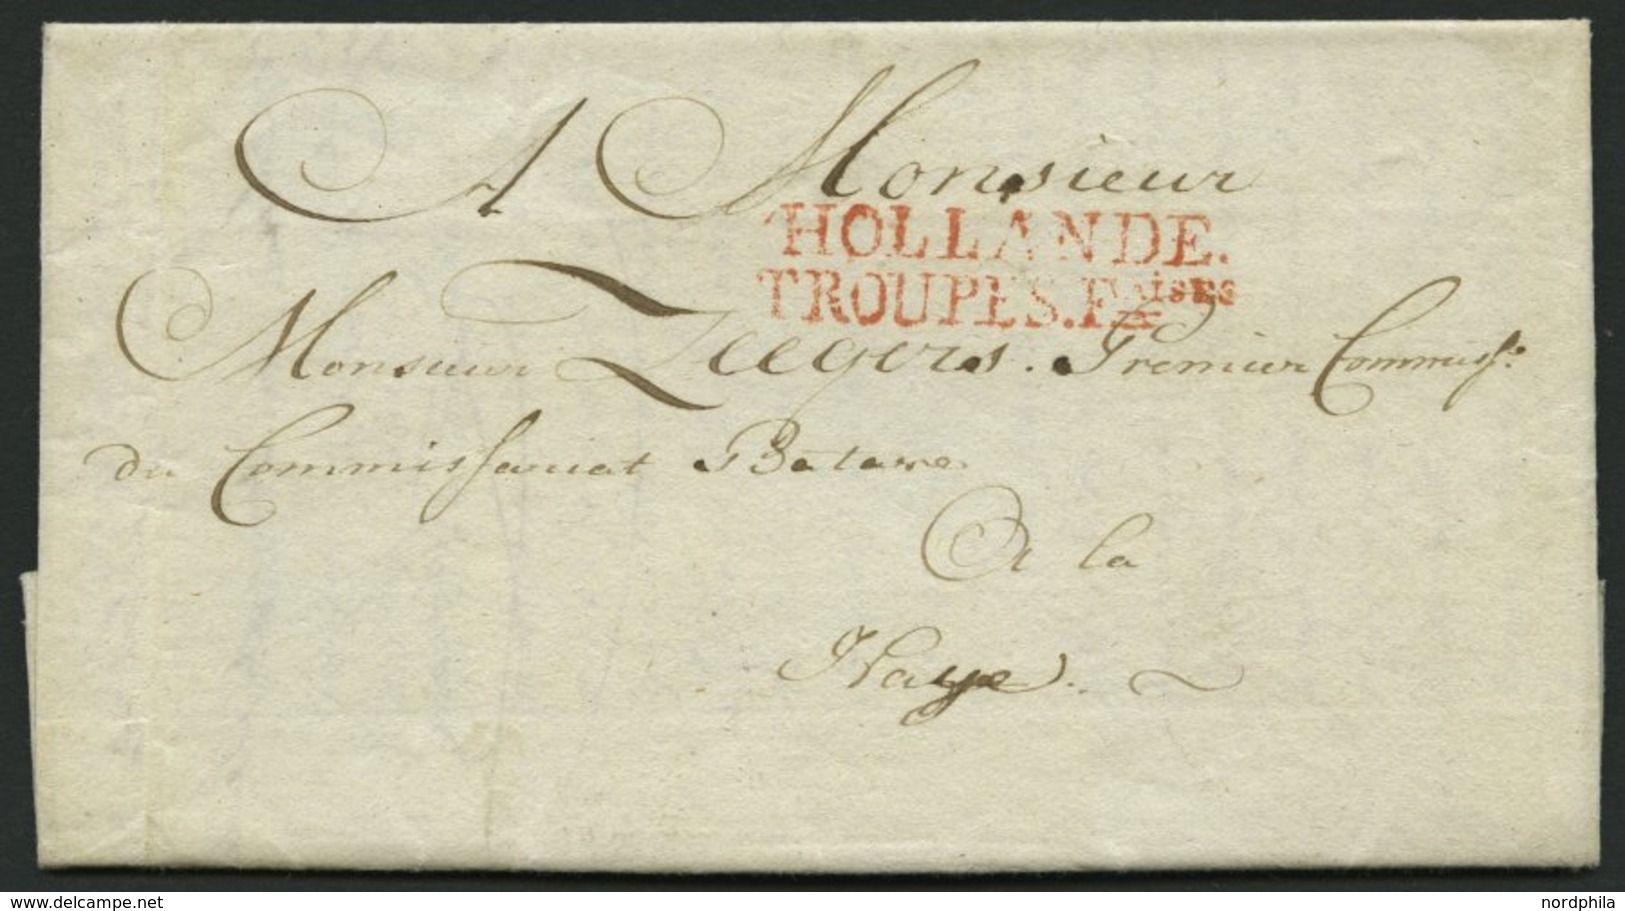 A Monsieur
HOLLANDE.
TROUPES.Fçaises
Monsieur Zeegers. Premier Commiss.
du Commissariat Batave
A la
Haye.
www.delcampe.net
nordphila